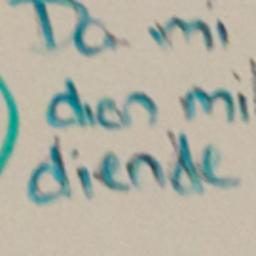 Da mi
dien mil
diende